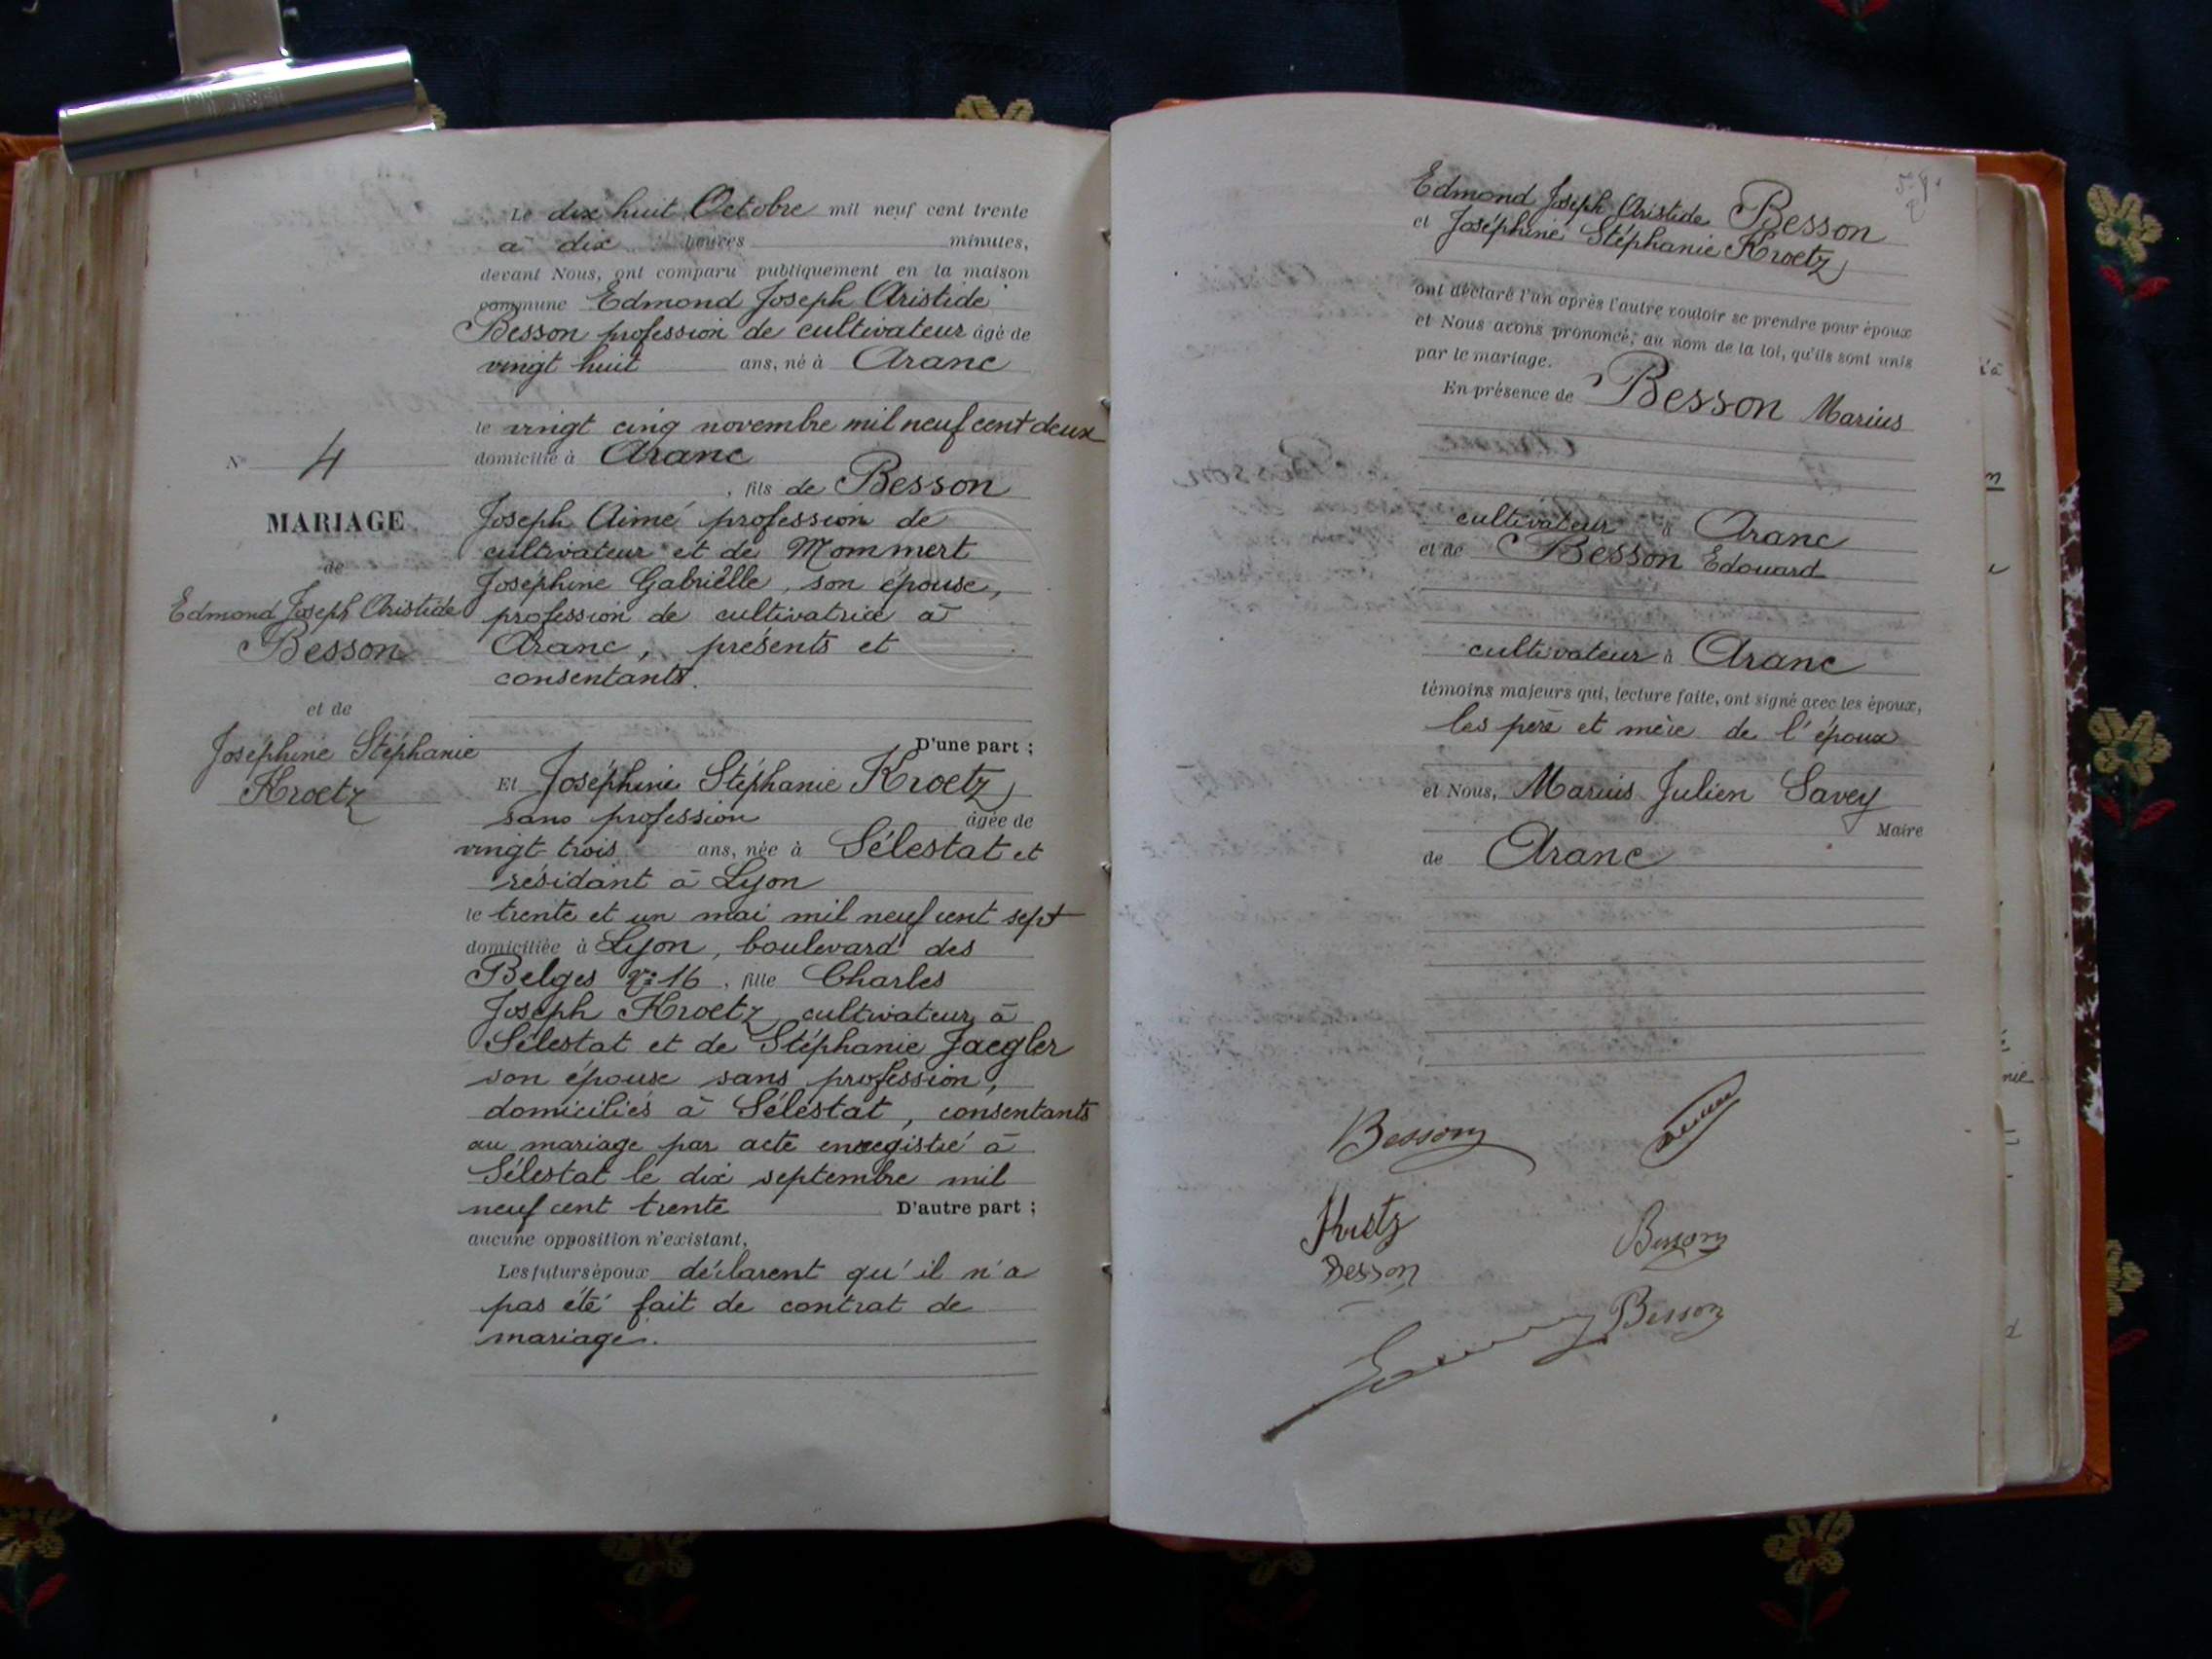 Le dix huit Octobre mil neuf cent trente
à dix heures minutes,
devant Nous, ont comparu publiquement en la maison
commune Edmond Joseph Aristide
Besson profession de cultivateur âgé de
vingt huit ans, né à Aranc
le vingt cinq novembre mil neuf cent deux
domicilié à Aranc
, fils de Besson
Joseph Aimé profession de
cultivateur et de Mommert
Joséphine Gabriëlle, son épouse,
profession de cultivatrice à
Aranc, présents et
consentants.
D'une part ;
Et Joséphine Stéphanie Kroetz
sans profession âgée de
vingt-trois ans, née à Sélestat et
résidant à Lyon
le trente et un mai mil neuf cent sept
domiciliée à Lyon, boulevard des
Belges No 16, fille Charles
Joseph Kroetz, cultivateur, à
Sélestat et de Stéphanie Jaegler
son épouse sans profession,
domiciliés à Sélestat, consentants
au mariage par acte enregistré à
Sélestat le dix septembre mil
neuf cent trente D'autre part ;
aucune opposition n'existant,
Les futurs époux déclarent qu'il n'a
pas été fait de contrat de
mariage.
No 4
MARIAGE
de
Edmond Joseph Aristide
Besson
et de
Joséphine Stéphanie
Kroetz
Edmond Joseph Aristide Besson
et Joséphine Stéphanie Kroetz
ont déclaré l'un après l'autre vouloir se prendre pour époux
et Nous avons prononcé, au nom de la loi, qu'ils sont unis
par le mariage.
En présence de Besson Marius
cultivateur à Aranc
et de Besson Edouard
cultivateur à Aranc
témoins majeurs qui, lecture faite, ont signé avec les époux,
les père et mère de l'époux
et Nous, Marius Julien Savey
Maire
de Aranc
Besson
Kroetz
Besson
Besson
Besson